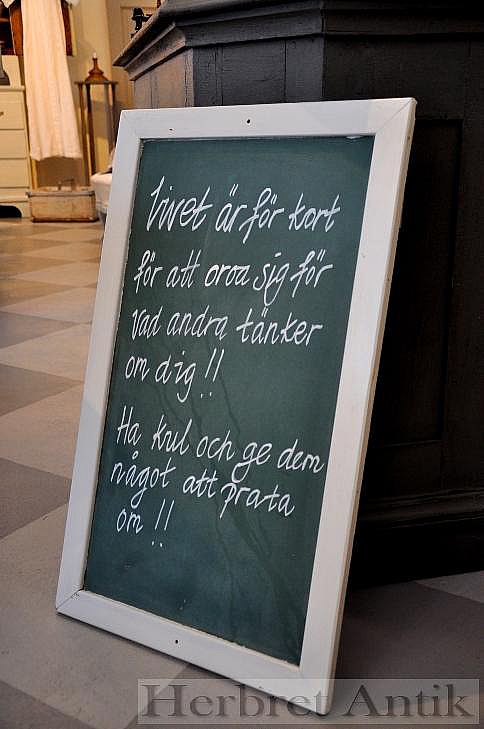 livet är för kort
för att oroa sig för
vad andra tänker
om dig!!
Ha kul och ge dem
något att prata
om!!
Herbret Antik